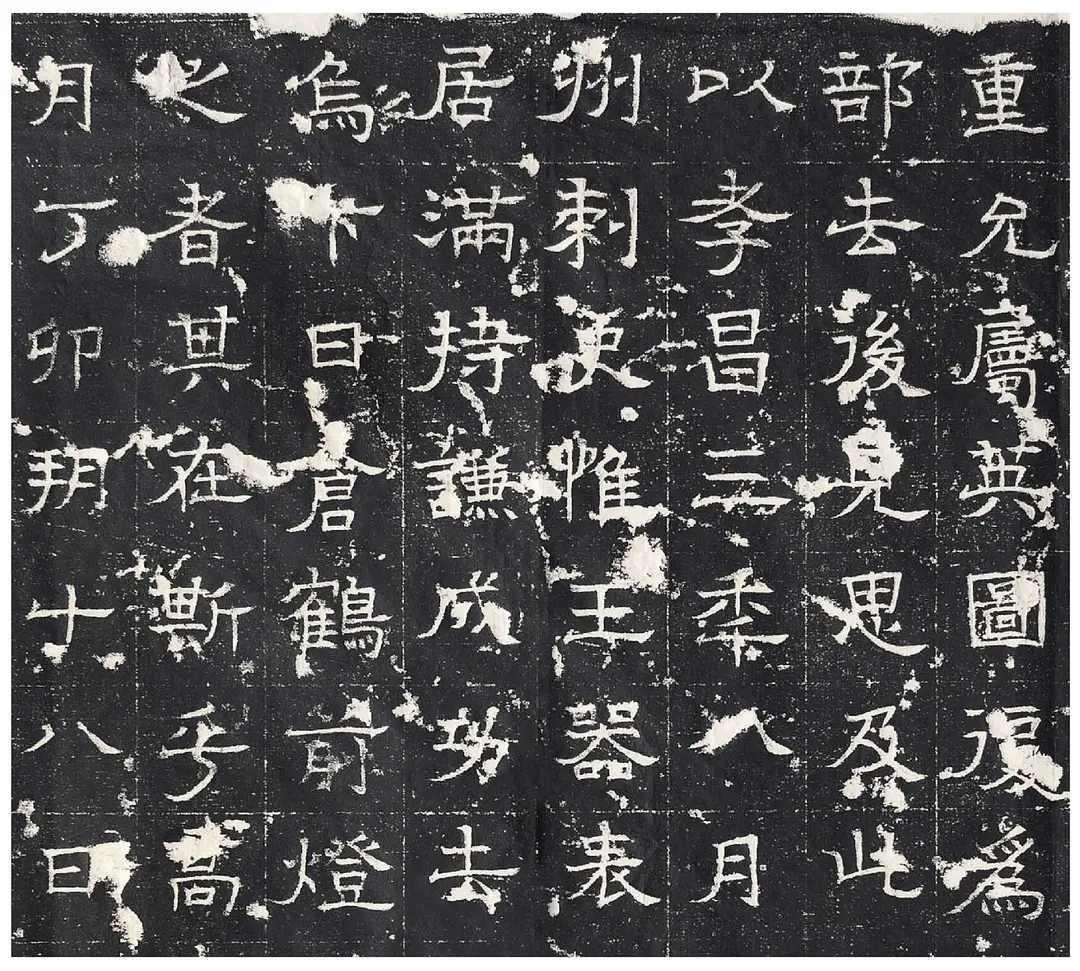 重允英圖復爲
部去後見思及此
以孝昌三秊八月
州刺史惟王器表
居滿持謙成功去
烏下日倉鶴前燈
之者其在斯乎高
月丁卯朔十八日